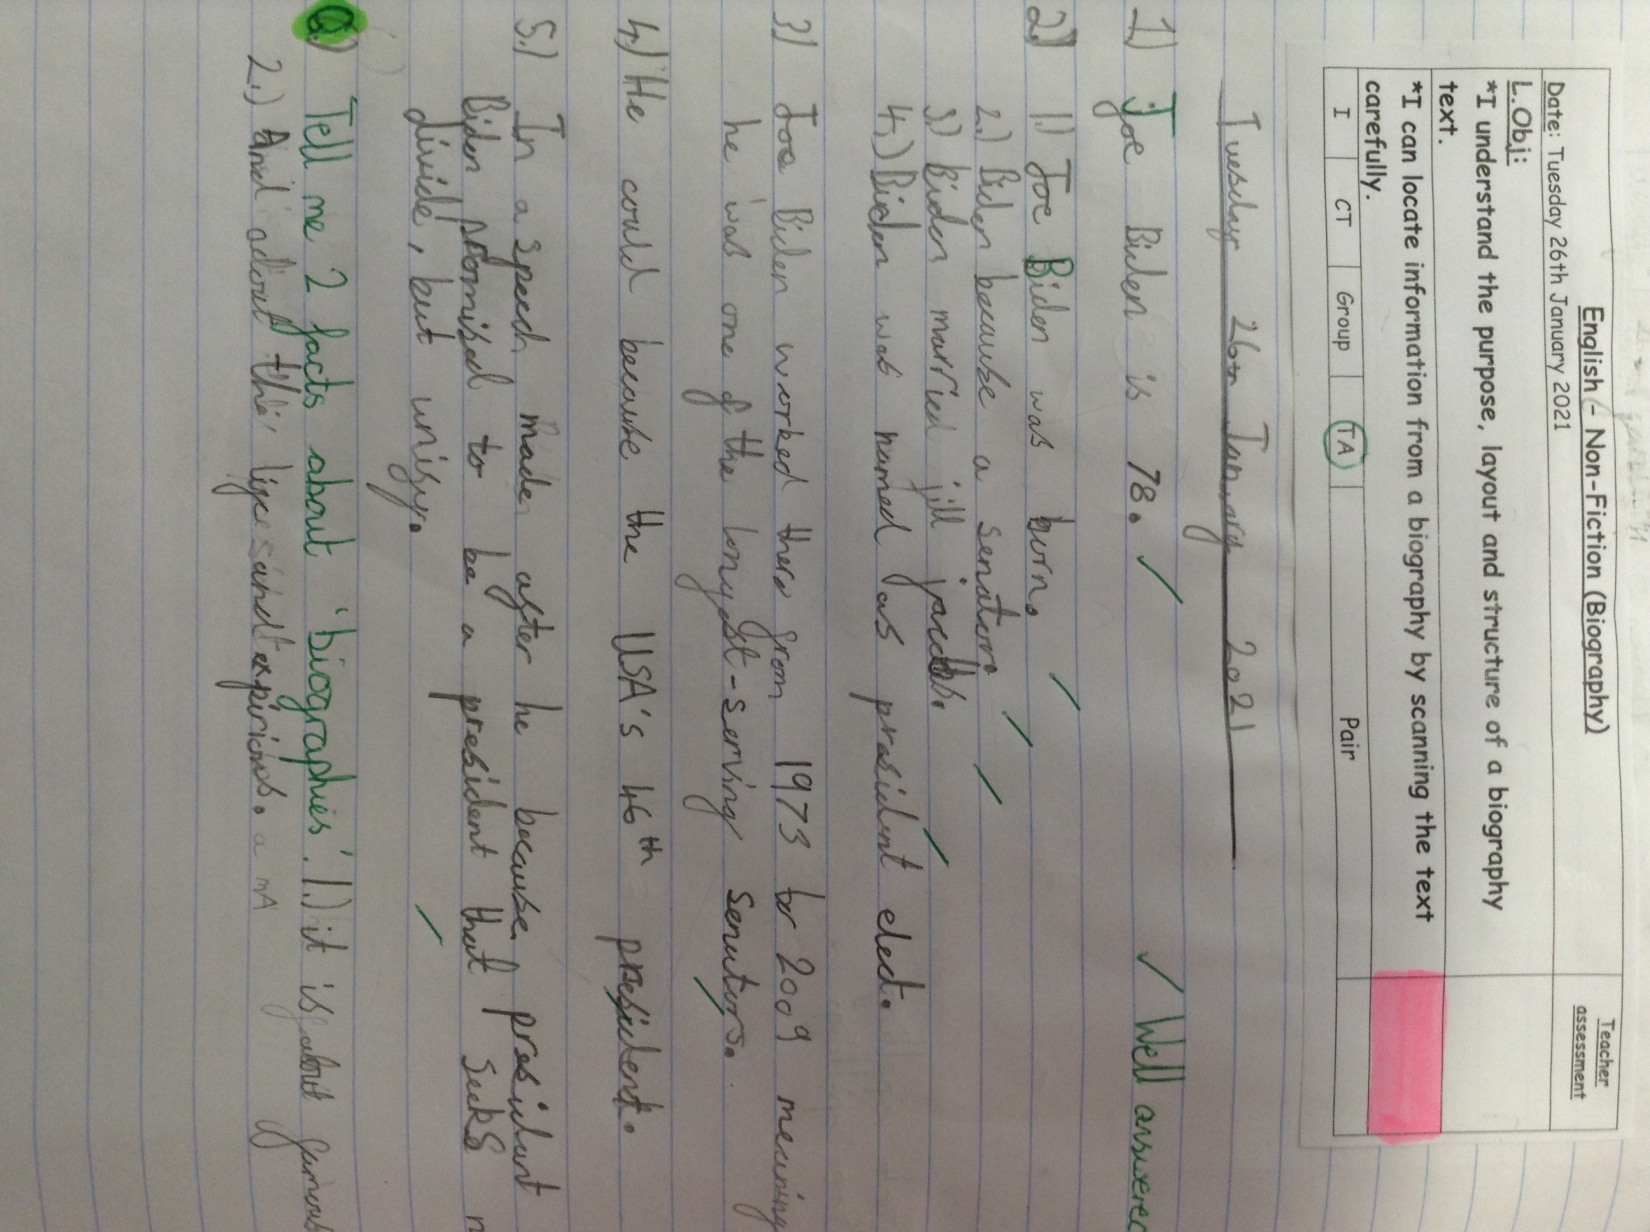 English - Non-Fiction (Biography)
Date: Tuesday 26th January 2021
Teacher assessment
L.Obj:
*I understand the purpose, layout and structure of a biography
text.
*I can locate information from a biography by scanning the text
carefully.
I CT Group TA Pair
Tuesday 26th January 2021
✓ Well answered
1) Joe Biden is 78. ✓
2) 1.) Joe Biden was born.
2.) Biden became a senator.
3.) Biden married jill jacobs.
4.) Biden was named as president elect.
3) Joe Biden worked there from 1973 to 2009 meaning
he was one of the longest-serving senators.
4.) He could because the USA's 46th president.
5.) In a speech made after he because president
Biden promised to be a president that seeks n
divide, but unify.
Q.) Tell me 2 facts about 'biographies'. 1.) it is about famous
2.) And about their life